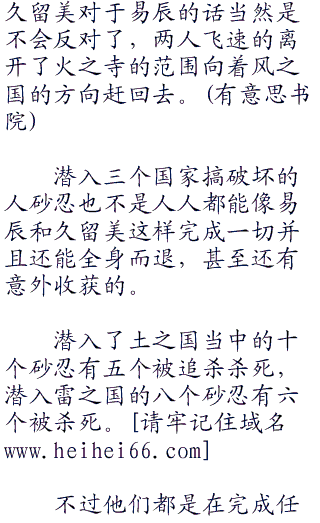 久留美对于易辰的话当然是
不会反对了，两人飞速的离
开了火之寺的范围向着风之
国的方向赶回去。(有意思书
院)
潜入三个国家搞破坏的
人砂忍也不是人人都能像易
辰和久留美这样完成一切并
且还能全身而退，甚至还有
意外收获的。
潜入了土之国当中的十
个砂忍有五个被追杀杀死，
潜入雷之国的八个砂忍有六
个被杀死。[请牢记住域名
www.heihei66.com]
不过他们都是在完成任